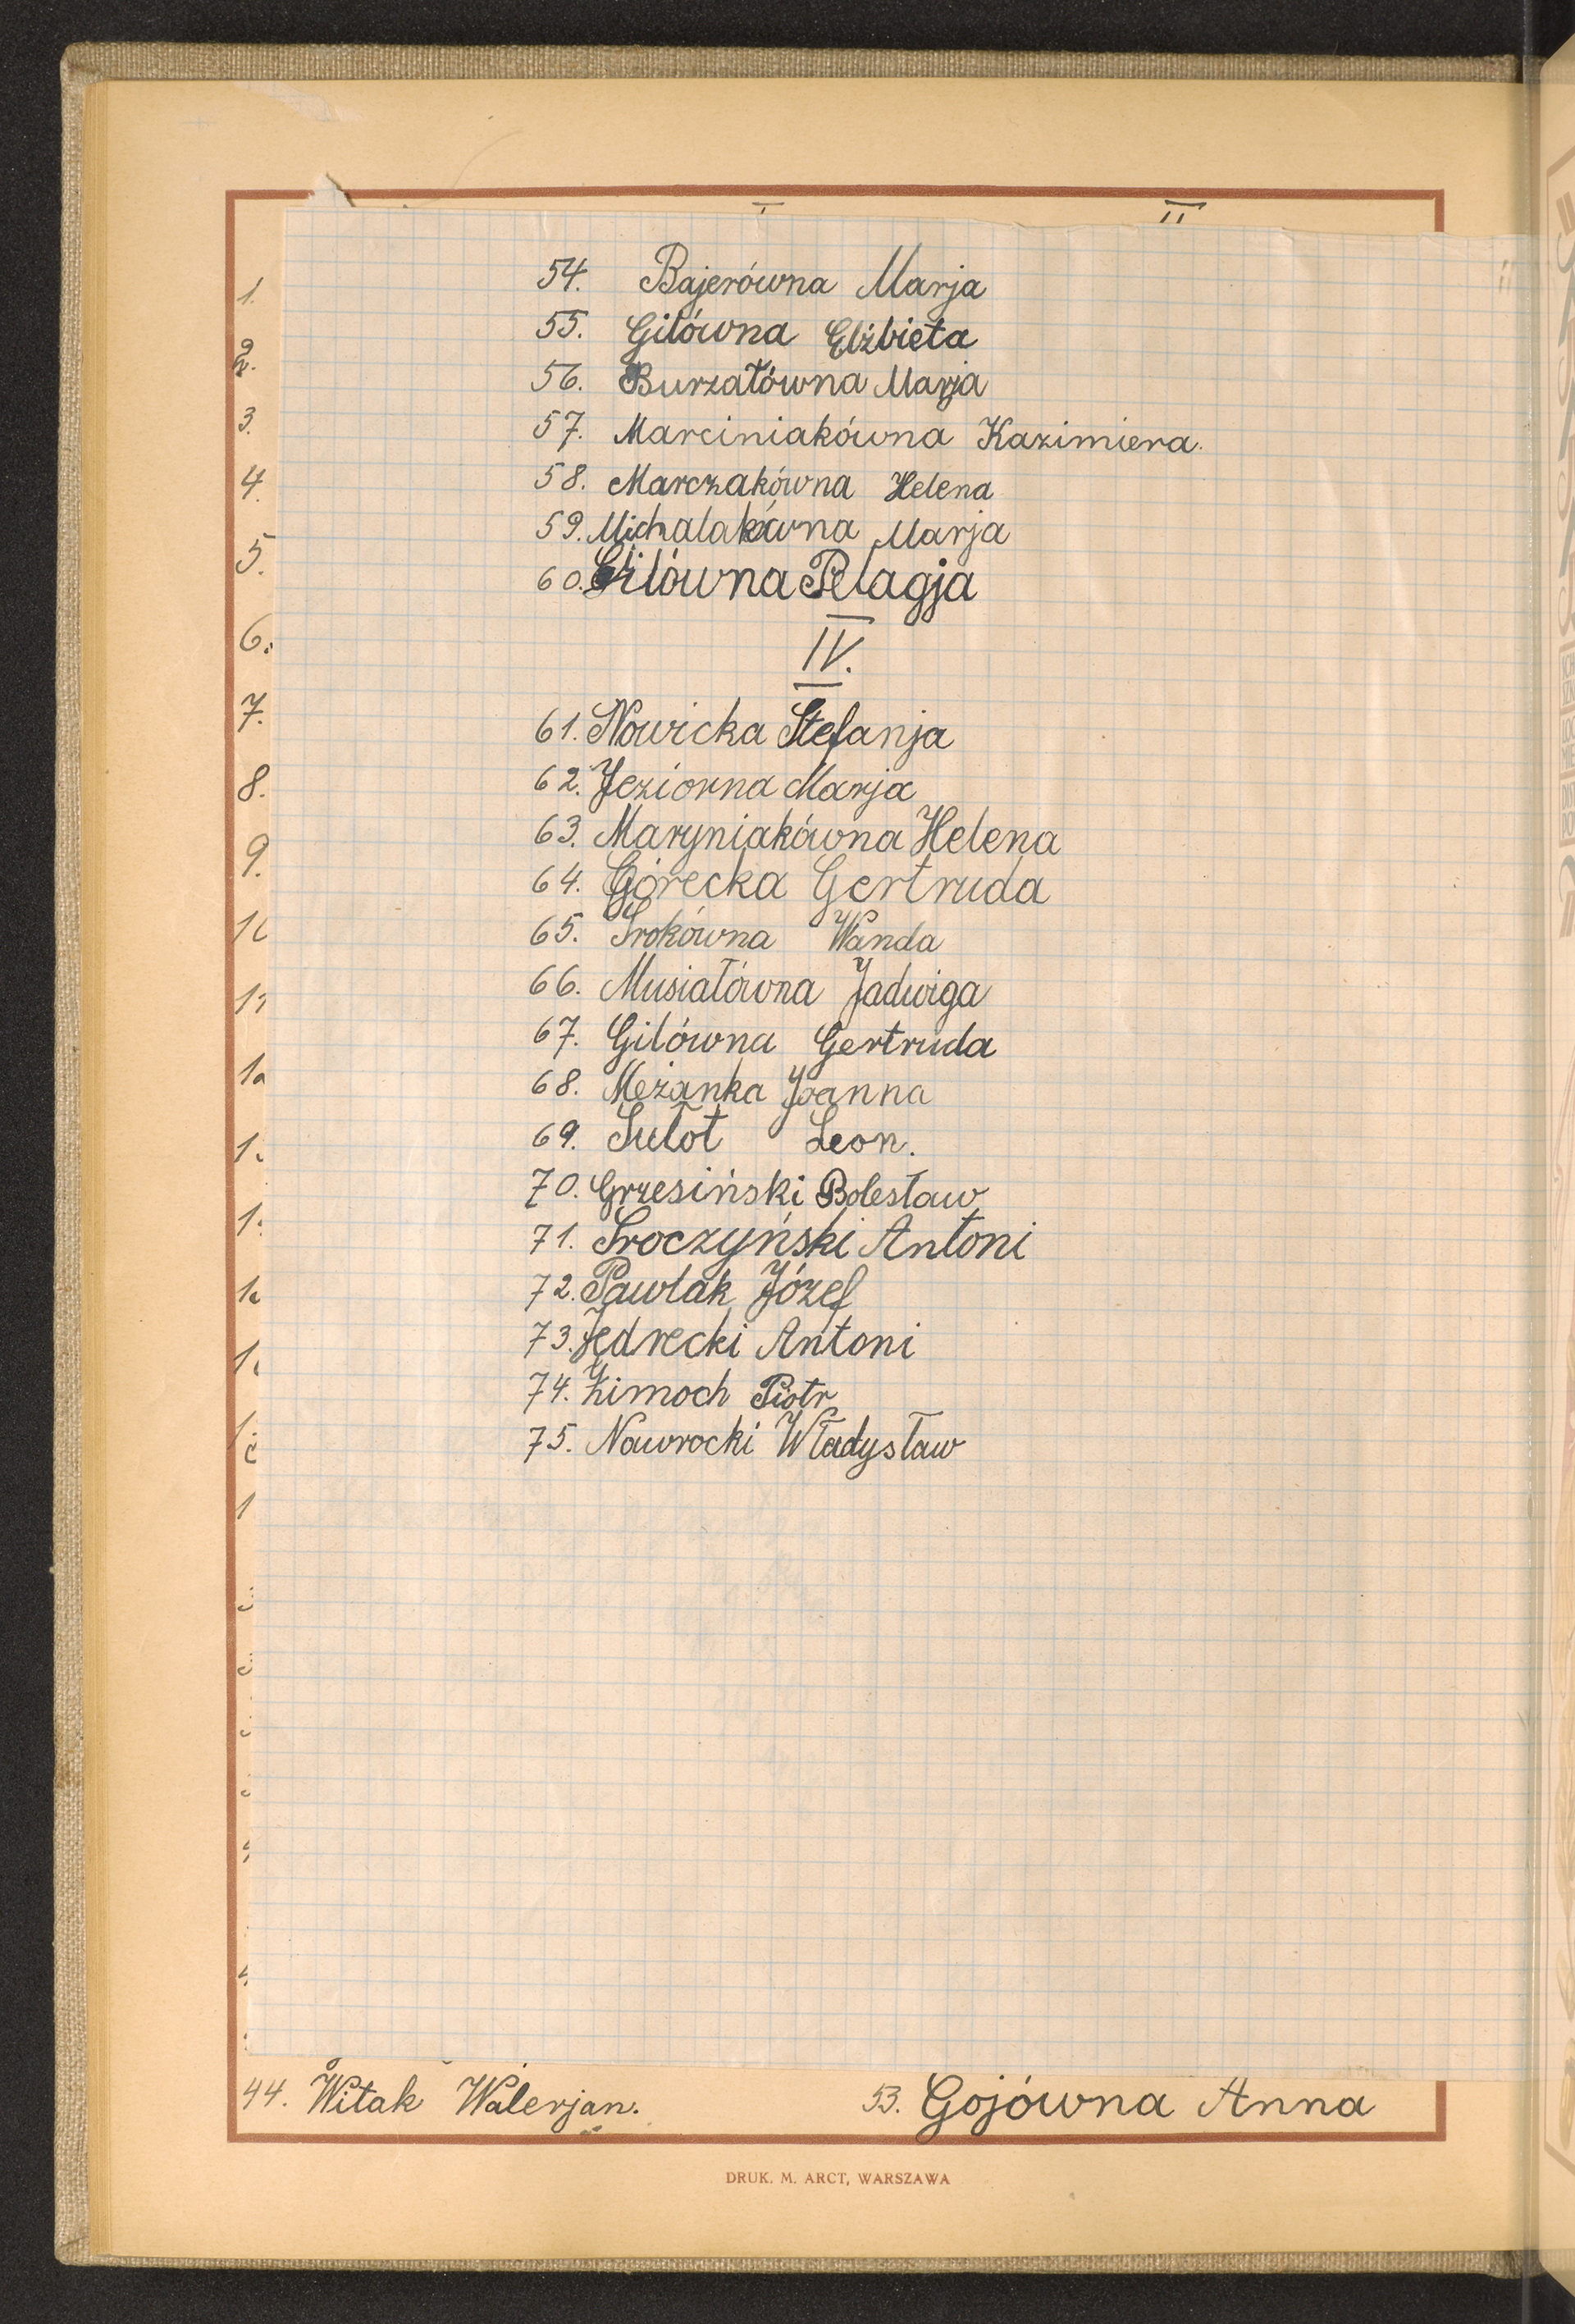 I II
54. Bajerówna Marja
55. Gilówna Elżbieta
56. Burzałówna Marja
57. Marciniakówna Kazimiera.
58. Marczakówna Helena
59. Michalakówna Marja
60. Gilówna Pelagja
IV.
61. Nowicka Stefanja
62. Jeziorna Marja
63. Maryniakówna Helena
64. Górecka Gertruda
65. Srokówna Wanda
66. Musiałówna Jadwiga
67. Gilówna Gertruda
68. Meżanka Joanna
69. Sułot Leon.
70. Grzesiński Bolesław
71. Sroczyński Antoni
72. Pawlak Józef
73. Jędrecki Antoni
74. Zimoch Piotr
75. Nawrocki Władysław
1.
2.
3.
4.
5.
6.
7.
8.
9.
44. Witak Walerjan. 53. Gojówna Anna
DRUK. M. ARCT, WARSZAWA